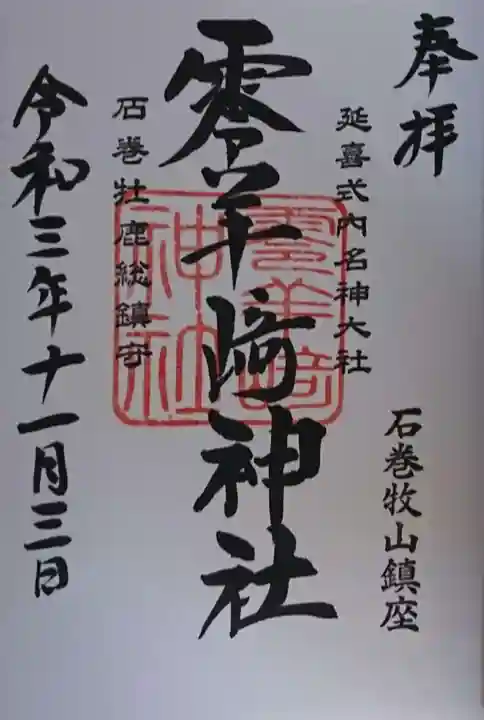 奉拝
石巻牧山鎮座
延喜式内名神大社
零羊﨑神社
零羊崎神社
石巻牡鹿総鎮守
令和三年十一月三日